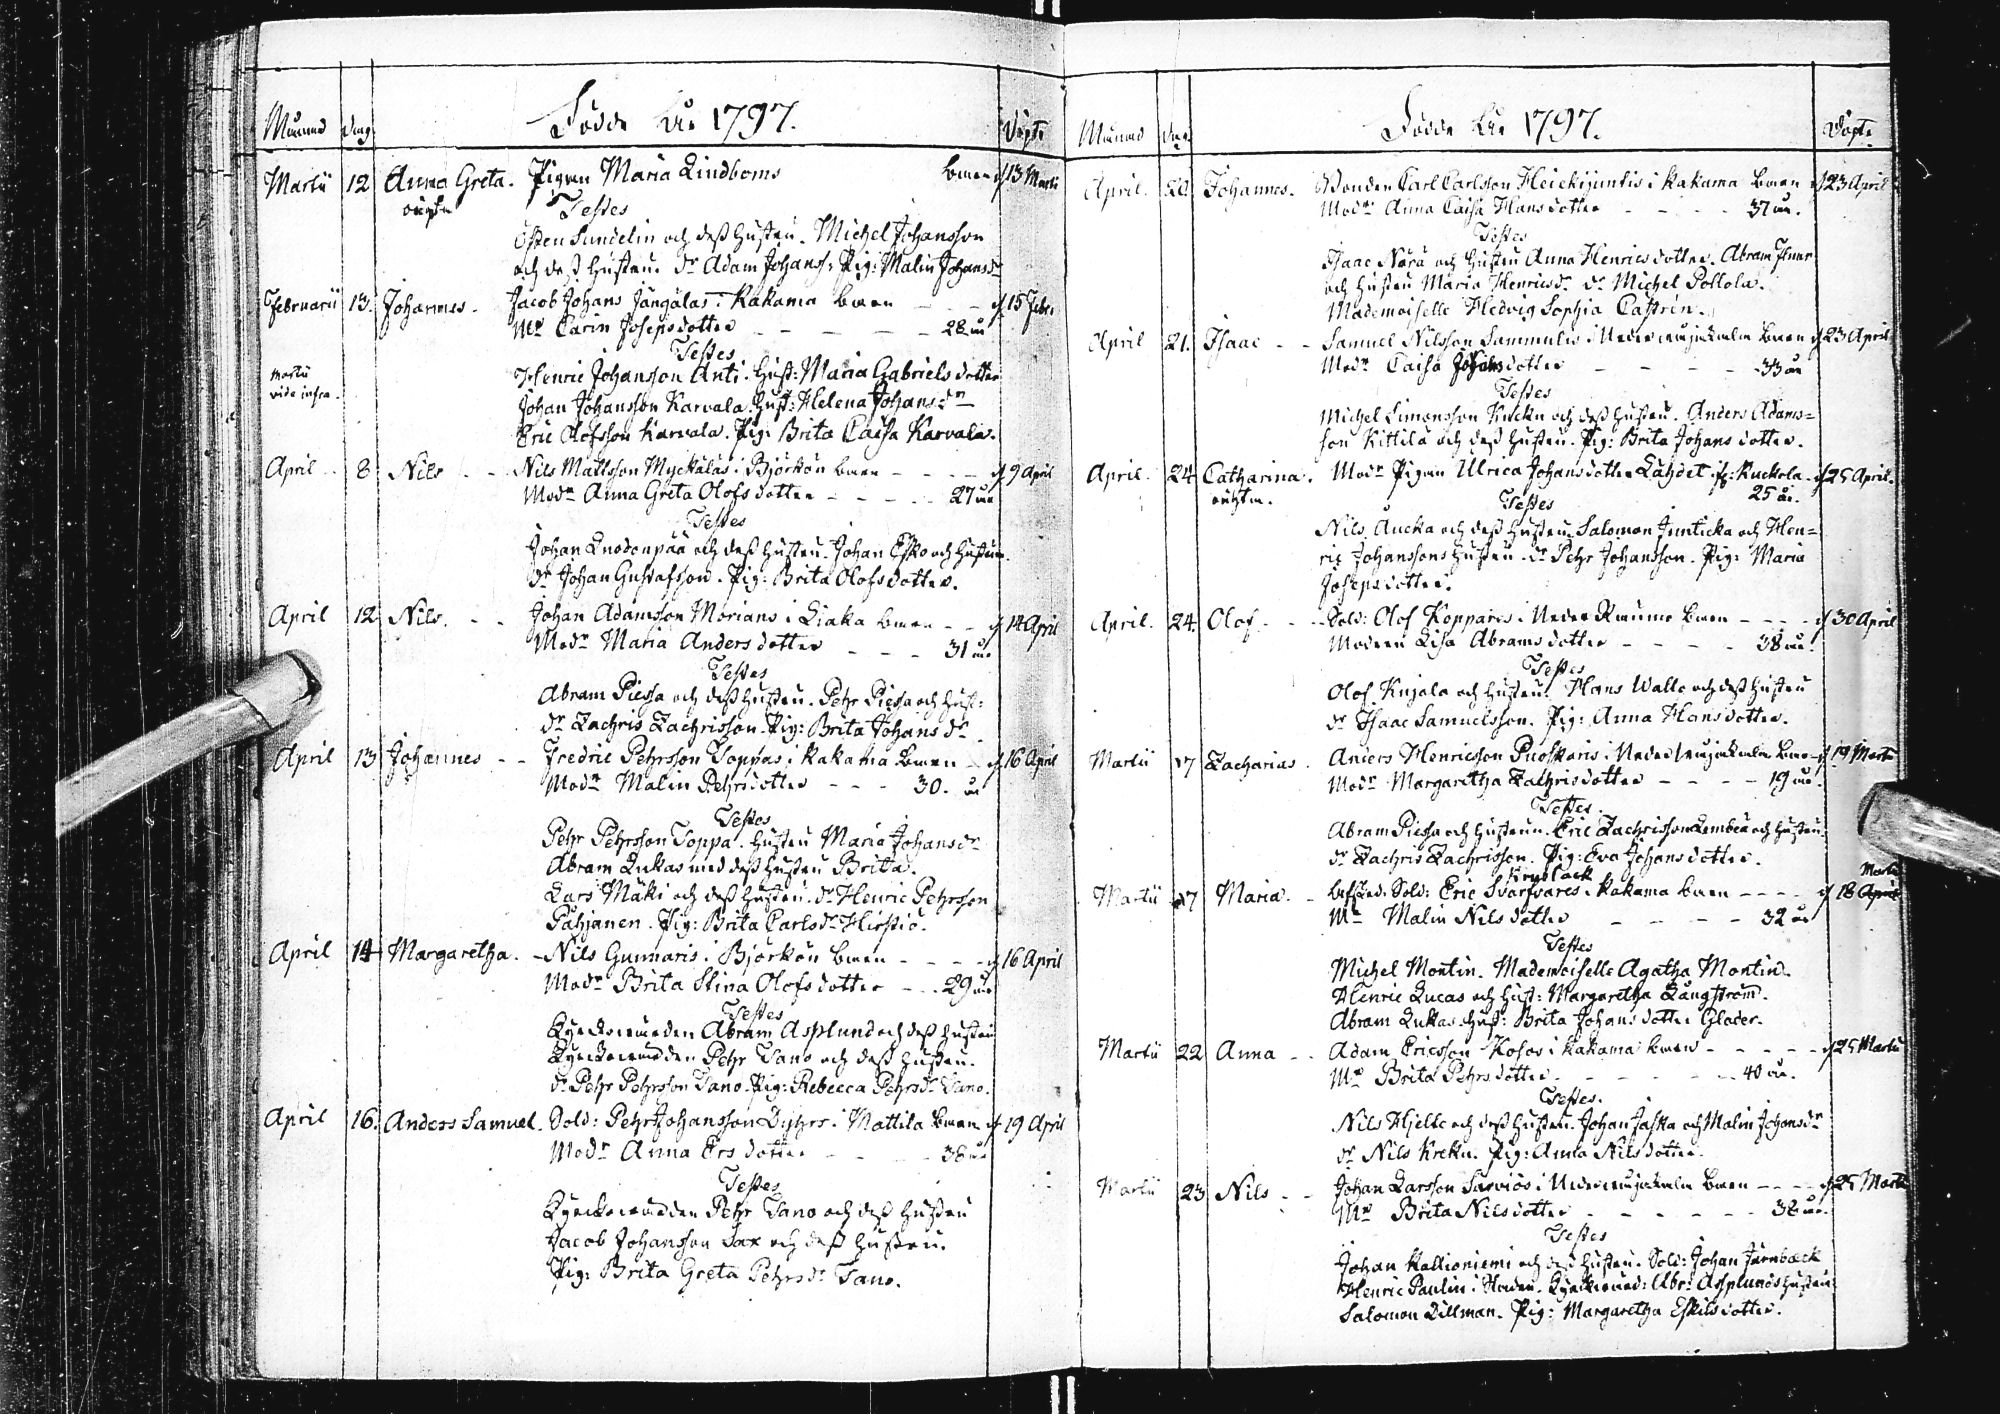 Månad Dag Födde År 1797. Döpte
Martii 12 Anna Greta. Pigan Maria Lindboms barn d 13 Martii
oägta Testes
Östen Sundelin och dess hustru. Michel Johansson
och dess hustru. dr Adam Johanss: Pig: Malin Johansdr
Februarii 13. Johannes. Jacob Johans Jängäläs i Kakama barn d 15 Febr.
Mr Carin Josephsdotter 28 år
Testes
Martii
vide infra.
Henric Johansson Anti. Hust: Maria Gabrielsdotter
Johan Johansson Karvala. Hust: Helena Johansdr
Eric Olofsson Karvala. Pig: Brita Caisa Karvala.
April 8 Nils Nils Mattsson Myckäläs i Björkön barn d 9 April
Modr Anna Greta Olofsdotter 27 år
Testes
Johan Luodonpää och dess hustru. Johan Esko och hustru.
dr Johan Gustafsson. Pig: Brita Olofsdotter.
April 12 Nils. Johan Adamsson Morians i Liaka barn d 14 April
Modr Maria Andersdotter 31 år
Testes
Abram Piessa och dess hustru. Pehr Piessa och hust:
dr Zachris Zachrisson. Pig: Brita Johansdr.
April 13 Johannes Fredric Pehrsson Toppas i Kakama Barn d. 16 April
Modr Malin Pehrsdotter 30. år
Testes
Pehr Pehrsson Toppa. hustru Maria Johansdr
Abram Lukas med dess hustru Brita.
Lars Mäki och dess hustru. dr Henric Pehrsson
Påhjanen. Pig: Brita Carlsdr Hirstiö.
April 14 Margaretha. Nils Gunnaris i Björkön barn d 16 April
Modr Brita Stina Olofsdotter 29 år
Testes
Kyrckovärden Abram Asplund och dess hustru
Kyrckovärden Pehr Tano och dess hustru.
dr Pehr Pehrsson Tano. Pig: Rebecca Pehrsdr Tano.
April 16. Anders Samuel. Sold: Pehr Johansson Dyhrs i Mattila barn d 19 April
Modr Anna Ersdotter 38 år
Testes
Kyrckovärden Pehr Tano och dess hustru
Jacob Johansson Sax och dess hustru.
Pig: Brita Greta Pehrsdr Tano.
Månad Dag Födde År 1797. Döpte
April. 20. Johannes. Bonden Carl Carlsson Heickijunkis i Kakama barn d 23 April
Modr Anna Caisa Hansdotter 37 år.
Testes
Isaac Nara och hustru Anna Henricsdotter. Abram
och hustru Maria Henricsdr dr Michel Pollola.
Mademoiselle Hedvig Sophia Castrén.
April 21. Isaac Samuel Nilsson Sammulis i Nedervojakkala barn d 23 April.
Modr Caisa Johansdotter 33 år
Testes
Michel Simonsson Kucku och dess hustru. Anders Adams=
son Kittilä och dess hustru. Pig: Brita Johansdotter.
April. 24 Catharina. Modr Pigan Ulrica Johansdotter Lähdet Kuckola d 25 April.
oägta. 25 år.
Testes
Nils Aucka och dess hustru. Salomon Junticka och Hen=
ric Johanssons hustru. dr Pehr Johansson. Pig: Maria
Josephsdotter.
April. 24. Olof Sold: Olof Koppares i Neder Raumo barn d 30 April
Modern Lisa Abramsdotter 38 år.
Testes
Olof Kujala och hustru. Hans Walto och dess hustru
dr Isaac Samuelsson. Pig: Anna Hansdotter.
Martii 17 Zacharias. Anders Henricsson Puoskaris i Nedervojakkala barn d 19 Martii
Modr Margaretha Zachrisdotter 19 år.
Testes.
Abram Piessa och hustrun. Eric Zachrisson Lembeä och hustru.
dr Zachris Zachrisson. Pig: Eva Johansdotter.
Martii 17 Maria. Sold: Eric Svarfvares i Kakama barn d 18 April Martii
Mr Malin Nilsdotter 32 år
Testes
Michel Montin. Mademoiselle Agatha Montin.
Henric Lucas och hust: Margaretha Långström.
Abram Lukas hust: Brita Johansdotter Glader.
Martii 22 Anna Adam Ericsson Kosos i Kakama barn d 25 Martii
Mr Brita Pehrsdotter. 40 år.
Testes.
Nils Hjelte och dess hustru. Johan Jaska och Malin Johansdr
dr Nils Kreku. Pig: Anna Nilsdotter.
Martii 23 Nils Johan Larsson Sarviös i Nedervojakkala barn d 25 Martii
Mr Brita Nilsdotter 38 år.
Testes
Johan Kallioniemi och dess hustru. Sold: Johan Järnbäck
Henric Paulin i Staden. Kyrkovärd: Abr: Asplunds hustru
Salomon Dillman. Pig: Margaretha Eskilsdotter.